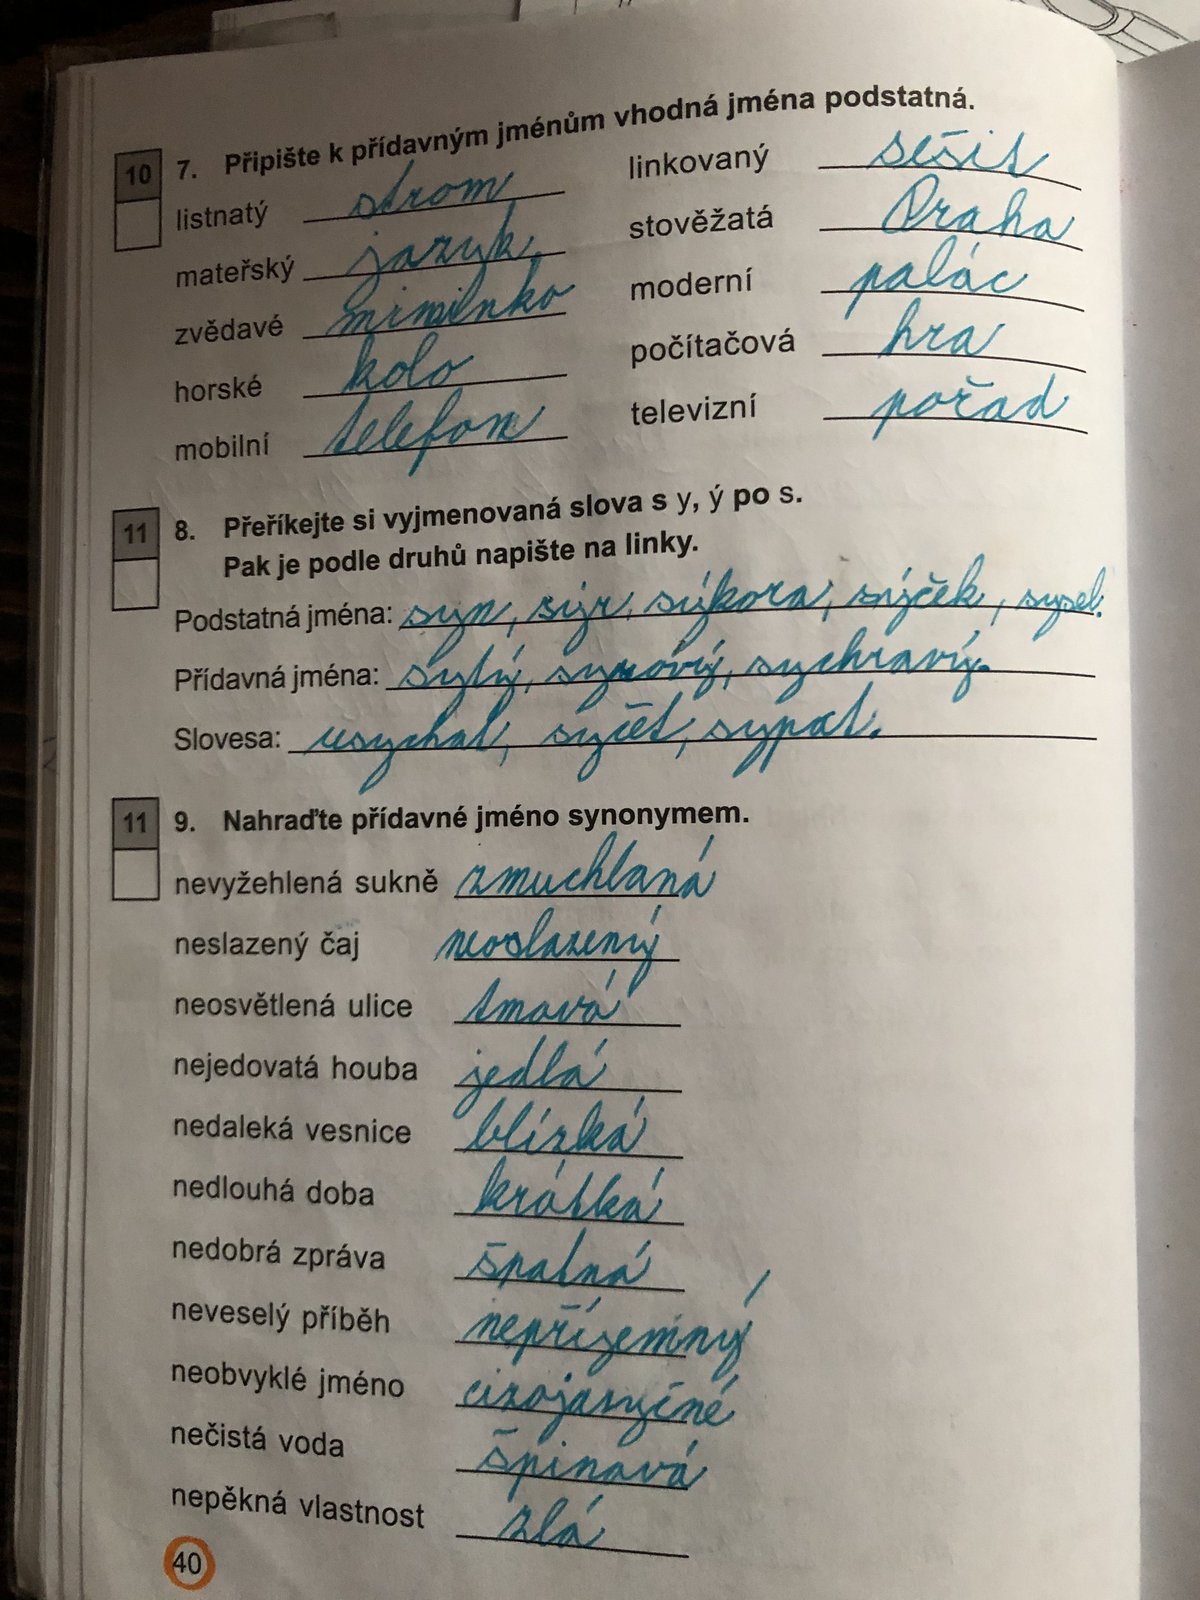 10 7. Připište k přídavným jménům vhodná jména podstatná.
listnatý strom linkovaný sešit
mateřský jazyk stověžatá Praha
zvědavé miminko moderní palác
horské kolo počítačová hra
mobilní telefon televizní pořad
11 8. Přeříkejte si vyjmenovaná slova s y, ý po s.
Pak je podle druhů napište na linky.
Podstatná jména: syn, sýr, sýkora, sýček, sysel.
Přídavná jména: sytý, syrový, sychravý.
Slovesa: usychat, syčet, sypat.
11 9. Nahraďte přídavné jméno synonymem.
nevyžehlená sukně zmuchlaná
neslazený čaj neoslazený
neosvětlená ulice tmavá
nejedovatá houba jedlá
nedaleká vesnice blízká
nedlouhá doba krátká
nedobrá zpráva špatná
neveselý příběh nepříjemný
neobvyklé jméno cizojazyčné
nečistá voda špinavá
nepěkná vlastnost zlá
40